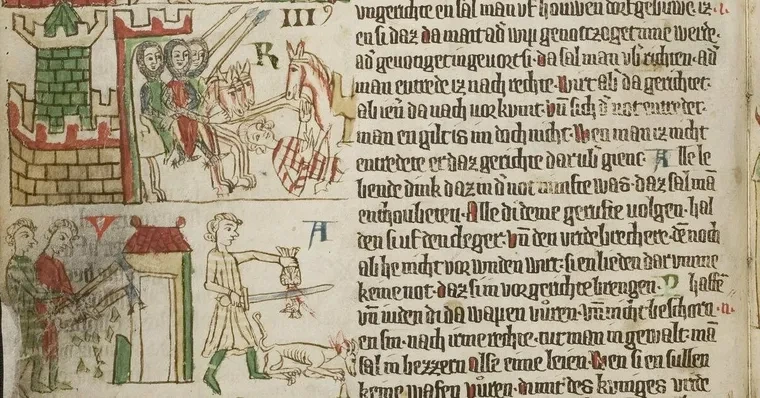 III9
R
V
A
vngerichte en sal man vf houwen dorf gebuwe. iz
en si daz da mait ad' wip genotzoget inne werde.
ad' genotiget in gevort si. da sal man vb' richten. ad'
man entrede iz nach rechte. wirt ab' da gerichtet.
ab ien' da nach vor kumt. vn̄ sich d' not entredet.
man en gilt is im doch nicht. Wen man iz nicht
entredete er daz gerichte dar ub' gienc. Alle le
bende dink daz in d' not nunfte was. daz sal mā
enthoubeten. Alle di deme gerufte volgen. hal
den si uf den cleger. vn̄ den vredebrechere. den noch
ab he nicht vorwnden wirt. si en lieden dar vmme
keine not. daz si in vor gerichte brengen. Phaffē
vn̄ iuden di da wapen vuren. vn̄ nicht beschorn.
en sin. nach irme rechte. tut man in gewalt. mā
sal in bezzern alse eime leien. Wen si en sullen
keine wafen vuren. di mit des kuniges vrede